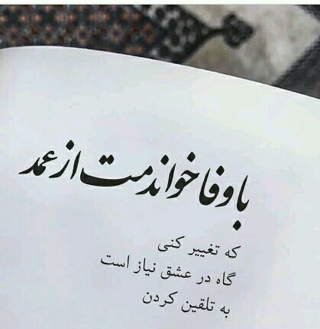 باوفا خواندمت از عمد
که تغییر کنی
گاه در عشق نیاز است
به تلقین کردن